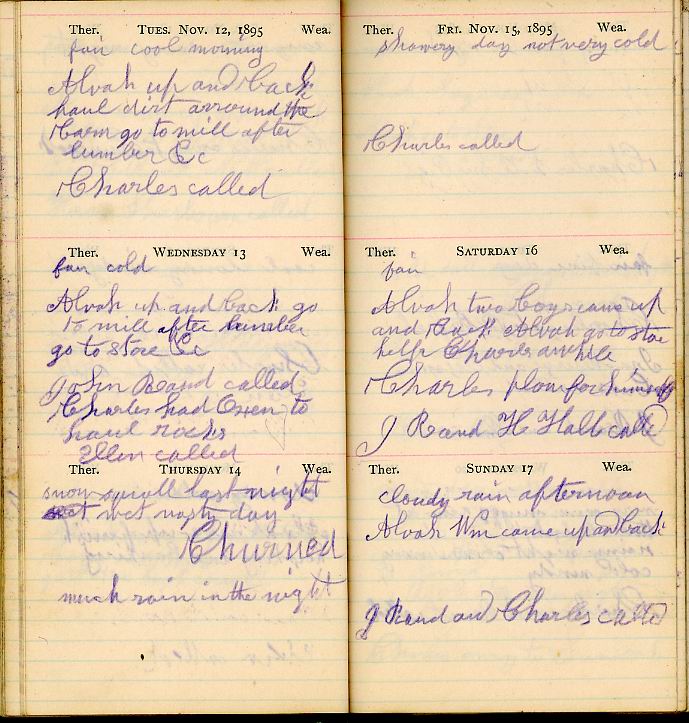 Ther. TUES. NOV. 12, 1895 Wea.
fair cool morning
Alvah up and back
haul dirt arround the
barn go to mill after
lumber &c
Charles called
Ther. WEDNESDAY 13 Wea.
fair cold
Alvah up and back go
to mill after lumber
go to store &c
John Rand called
Charles had Oxen to
haul rocks
Ellen called
Ther. THURSDAY 14 Wea.
snow squall last night
wet nasty day
Churned
much rain in the night
Ther. FRI. NOV. 15, 1895 Wea.
showery day not very cold
Charles called
Ther. SATURDAY 16 Wea.
fair
Alvah two boys came up
and back Alvah go to store
help Charles awhile
Charles plow for himself
J Rand H Hall calle
Ther. SUNDAY 17 Wea.
cloudy rain afternoon
Alvah Wm came up and back
J Rand and Charles calle